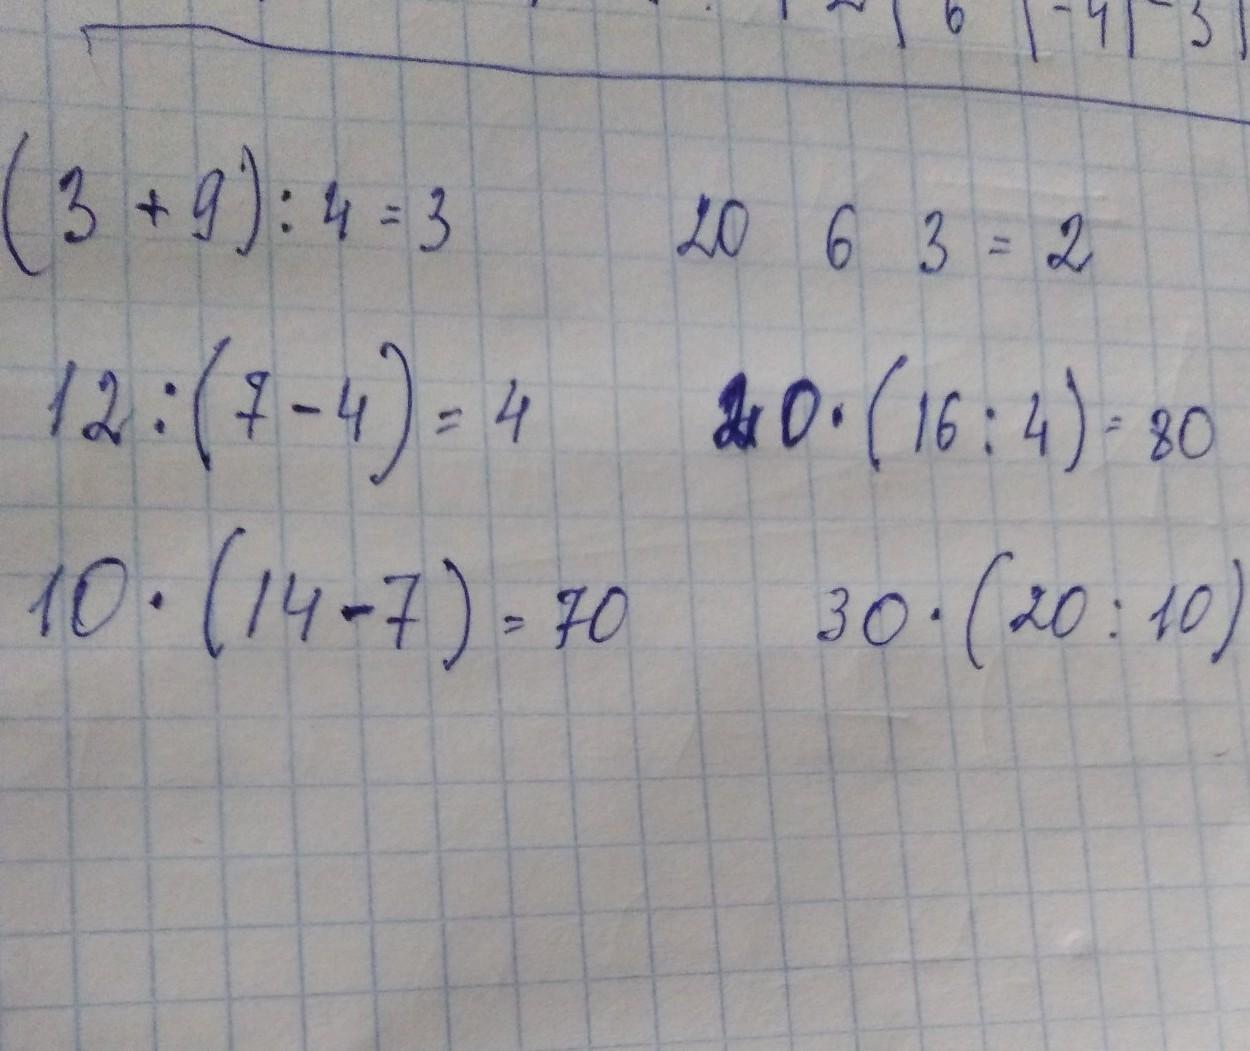 6 | -4 | -3 |
(3 + 9) : 4 = 3 20 6 3 = 2
12 : (7 - 4) = 4 20 · (16 : 4) = 80
10 · (14 - 7) = 70 30 · (20 : 10)